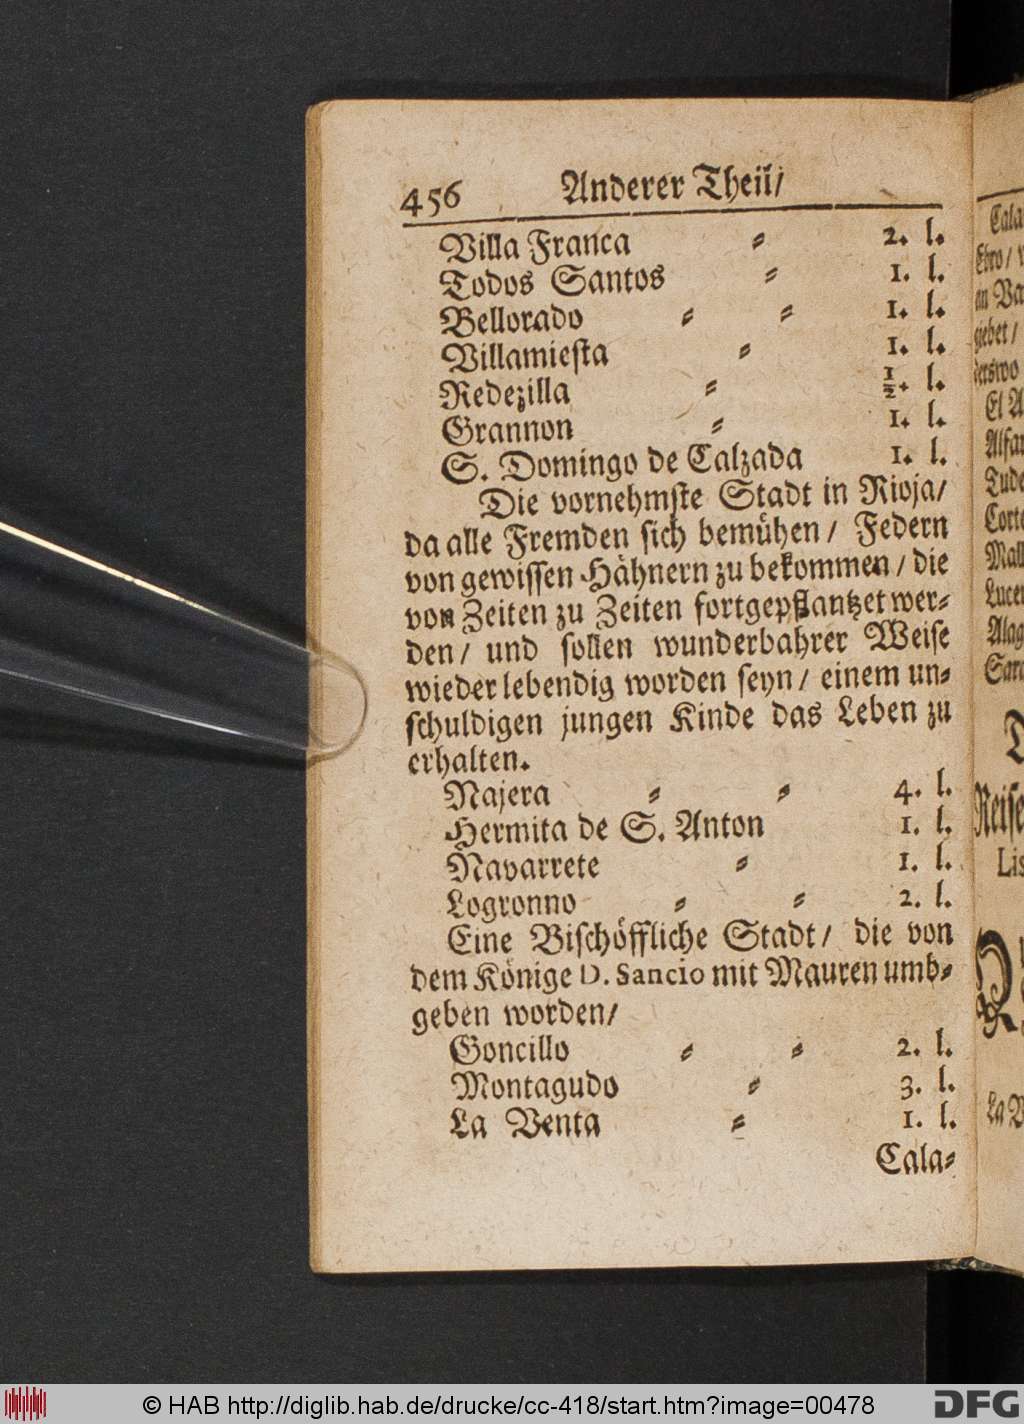 456 Anderer Theil/
Villa Franca ⸗ 2. l.
Todos Santos ⸗ 1. l.
Bellorado ⸗ ⸗ 1. l.
Villamiesta ⸗ 1. l.
Redezilla ⸗ ½. l.
Grannon ⸗ 1. l.
S. Domingo de Calzada 1. l.
Die vornehmste Stadt in Rioja/
da alle Fremden sich bemühen/ Federn
von gewissen Hähnern zu bekommen/ die
von Zeiten zu Zeiten fortgepflantzet wer⸗
den/ und sollen wunderbahrer Weise
wieder lebendig worden seyn/ einem un⸗
schuldigen jungen Kinde das Leben zu
erhalten.
Najera ⸗ ⸗ 4. l.
Hermita de S. Anton 1. l.
Navarrete ⸗ 1. l.
Logronno ⸗ ⸗ 2. l.
Eine Bischöffliche Stadt/ die von
dem Könige D. Sancio mit Mauren umb⸗
geben worden/
Goncillo ⸗ ⸗ 2. l.
Montagudo ⸗ 3. l.
La Venta ⸗ 1. l.
Cala⸗
© HAB http://diglib.hab.de/drucke/cc-418/start.htm?image=00478
DFG